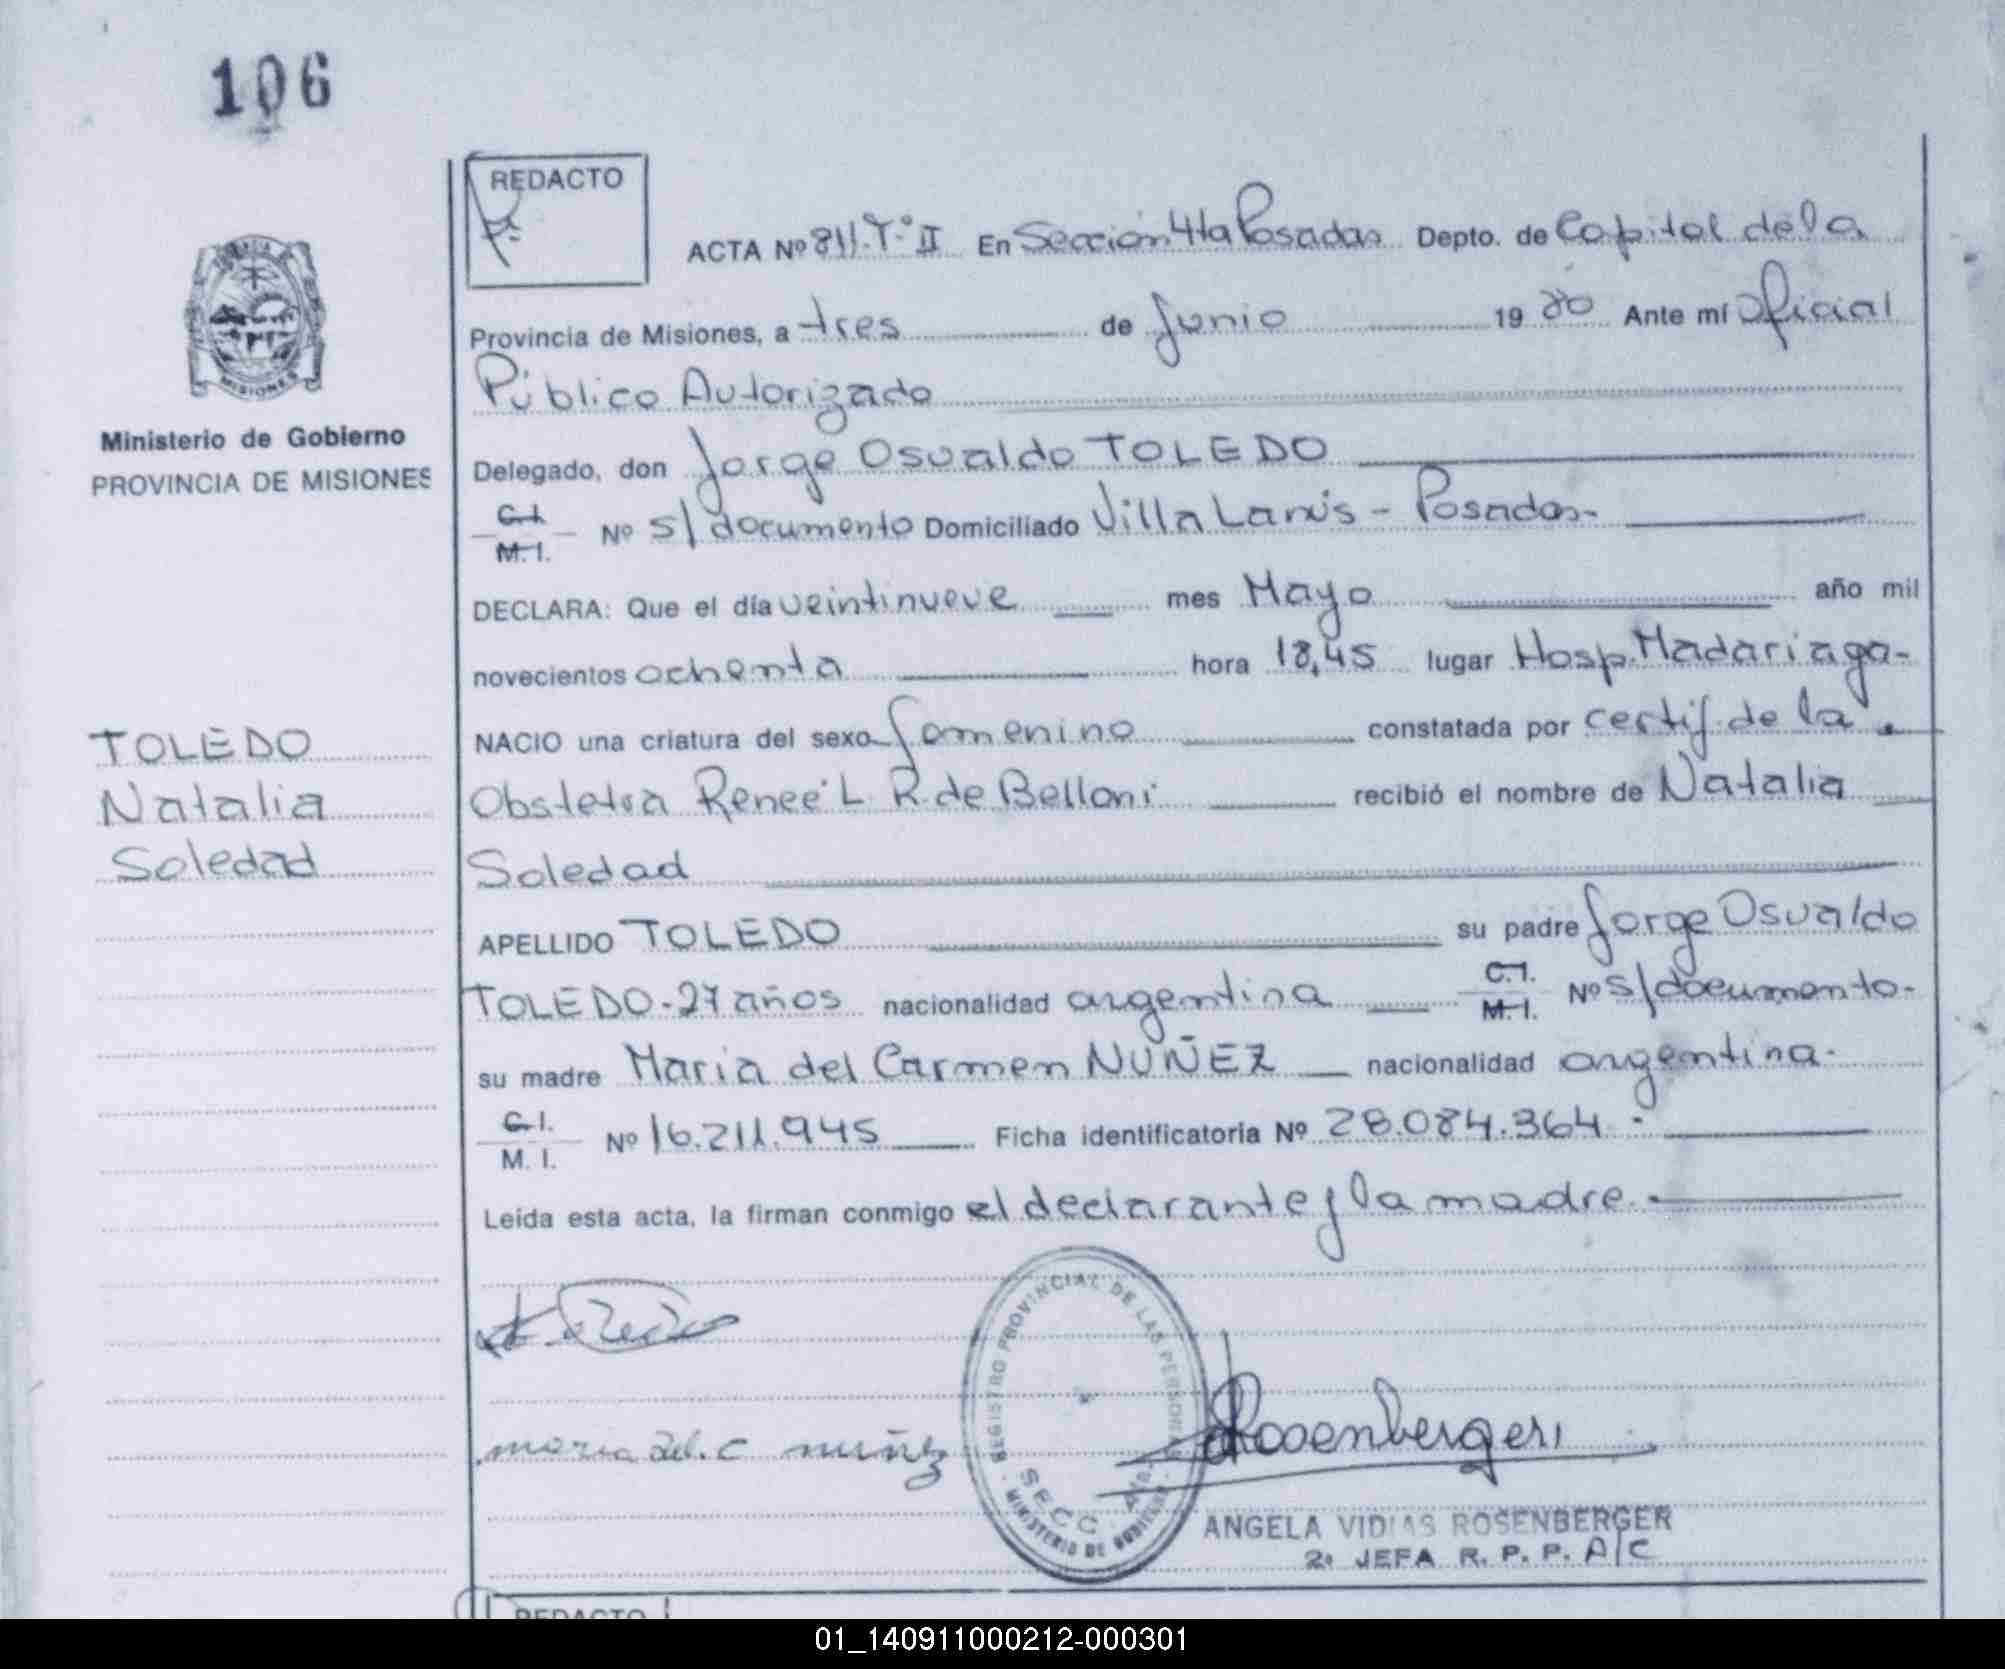 106
REDACTO
ACTA Nº 811.Tº II En Sección 4ta Posadas Depto. de Capital de la
Provincia de Misiones, a tres de Junio 1980 Ante mí Oficial
Público Autorizado
Delegado, don Jorge Osvaldo TOLEDO
C.I.
M.I. Nº s/documento Domiciliado Villa Lanús - Posadas-
DECLARA: Que el día veintinueve mes Mayo año mil
novecientos ochenta hora 18,45 lugar Hosp. Madariaga-
NACIO una criatura del sexo femenino constatada por certif. de la
Obstetra Reneé L. R. de Belloni recibió el nombre de Natalia
Soledad
APELLIDO TOLEDO su padre Jorge Osvaldo
TOLEDO-27 años nacionalidad argentina C.I. M.I. Nº s/documento-
su madre Maria del Carmen NUÑEZ nacionalidad argentina-
C.I.
M.I. Nº 16.211.945 Ficha identificatoria Nº 28.084.364.-
Leída esta acta, la firman conmigo el declarante y la madre.-
MISIONES
Ministerio de Gobierno
PROVINCIA DE MISIONES
TOLEDO
Natalia
Soledad
maria del.c nuñez
REGISTRO PROVINCIAL DE LAS PERSONAS
SECC. 4ta.
MINISTERIO DE GOBIERNO
Rosenberger
ANGELA VIDIAS ROSENBERGER
2ª JEFA R. P. P. A/C
REDACTO
01_140911000212-000301